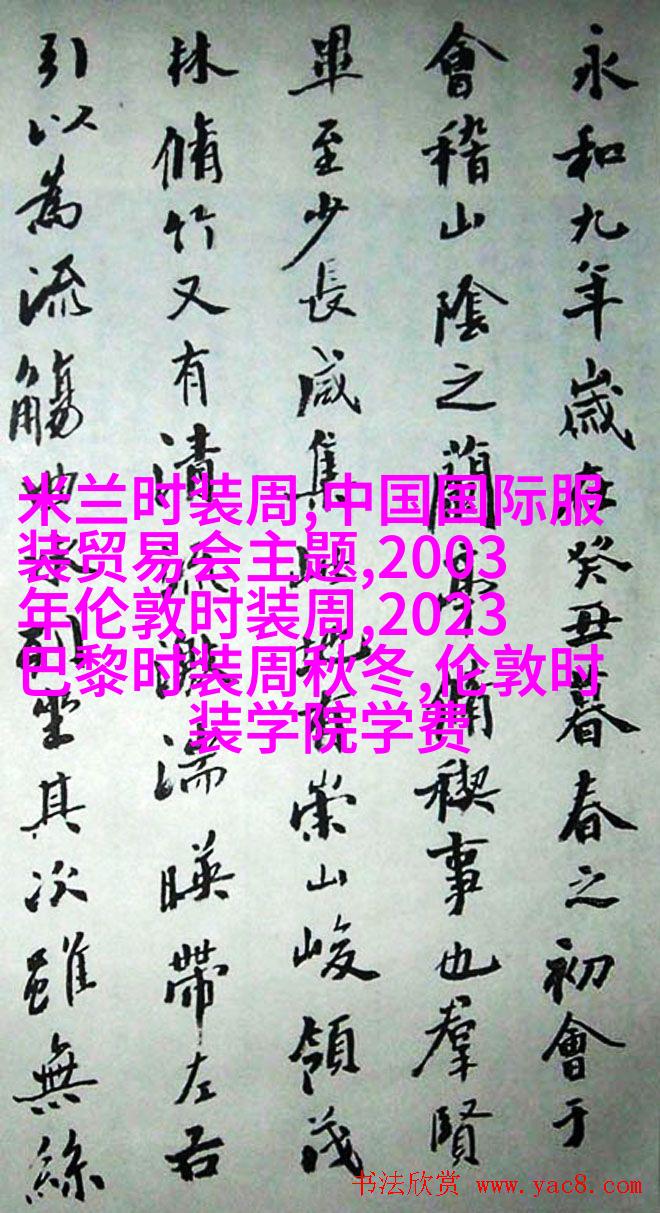 永和九年歲在癸丑暮春之初會于
會稽山陰之蘭亭脩禊事也羣賢
畢至少長咸集此地有崇山峻領茂
林脩竹又有清流激湍暎帶左右
引以為流觴曲水列坐其次雖無絲
米兰时装周,中国国际服
装贸易会主题,2003
年伦敦时装周,2023
巴黎时装周秋冬,伦敦时
装学院学费
书法欣赏 www.yac8.com